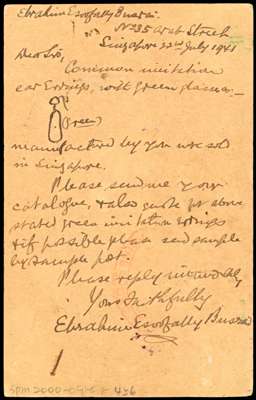 Ebrahim Esoofally Busrai
No 35 Arab Street
Singapore 22nd July 1941
Dear Sir,
Common imitation
ear Errings, with green glasses:—
Green
manufactured by you we sold
in Singapore.
Please send me your
catalogue, & also quote for above
stated green imitation Errings
& if possible please send sample
by sample post.
Please reply
Yours Faithfully
Ebrahim Esoofally Busrai